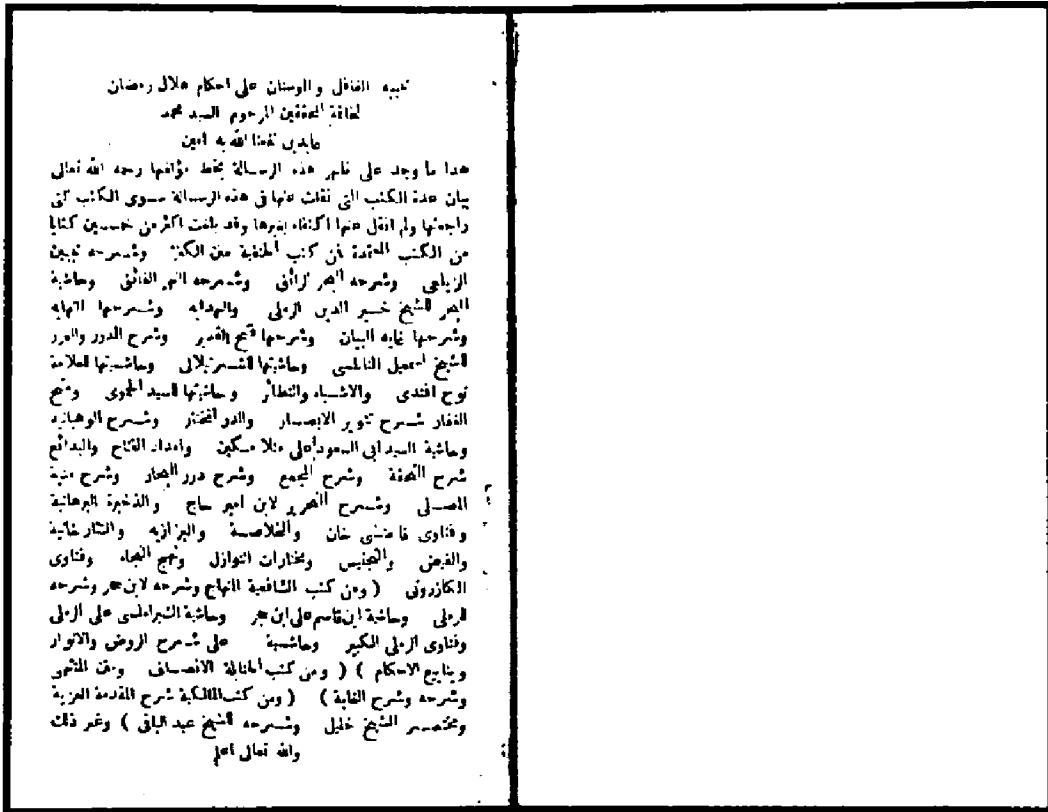 تنبيه الغافل والوسنان على احكام هلال رمضان
لخاتمة المحققين المرحوم السيد محمد
عابدين نفعنا الله به امين
هذا ما وجد على ظاهر هذه الرسالة بخط مؤلفها رحمه الله تعالى
بيان عدة الكتب التى نقلت عنها فى هذه الرسالة سوى الكتب التى
راجعتها ولم انقل عنها اكتفاء بغيرها وقد بلغت اكثر من خمسين كتابا
من الكتب المعتمدة فمن كتب الحنفية متن الكنز وشرحه تبيين
الزيلعى وشرحه البحر الرائق وشرحه النهر الفائق وحاشية
البحر للشيخ خير الدين الرملى والهدايه وشرحها النهايه
وشرحها غايه البيان وشرحها فتح القدير وشرح الدرر والغرر
للشيخ اسمعيل النابلسى وحاشيتها للشرنبلالى وحاشيتها للعلامة
نوح افندى والاشباه والنظائر وحاشيتها للسيد الحموى ومنح
الغفار شرح تنوير الابصار والدر المختار وشرح الوهبانيه
وحاشية السيد ابى السعود على منلا مسكين وامداد الفتاح والبدائع
شرح التحفة وشرح المجمع وشرح درر البحار وشرح منية
المصلى وشرح التحرير لابن امير حاج والذخيرة البرهانية
وفتاوى قاضى خان والخلاصة والبزازيه والتتارخانية
والفيض والتجنيس ومختارات النوازل ونهج النجاه وفتاوى
الكازرونى ( ومن كتب الشافعية المنهاج وشرحه لابن حجر وشرحه
للرملى وحاشية ابن قاسم على ابن حجر وحاشية الشبراملسى على الرملى
وفتاوى الرملى الكبير وحاشية على شرح الروض والانوار
وينابيع الاحكام ) ( ومن كتب الحنابلة الانصاف ومتن المنتهى
وشرحه وشرح الغاية ) ( ومن كتب المالكية شرح المقدمة العزية
ومختصر الشيخ خليل وشرحه للشيخ عبد الباقى ) وغير ذلك
والله تعالى اعلم